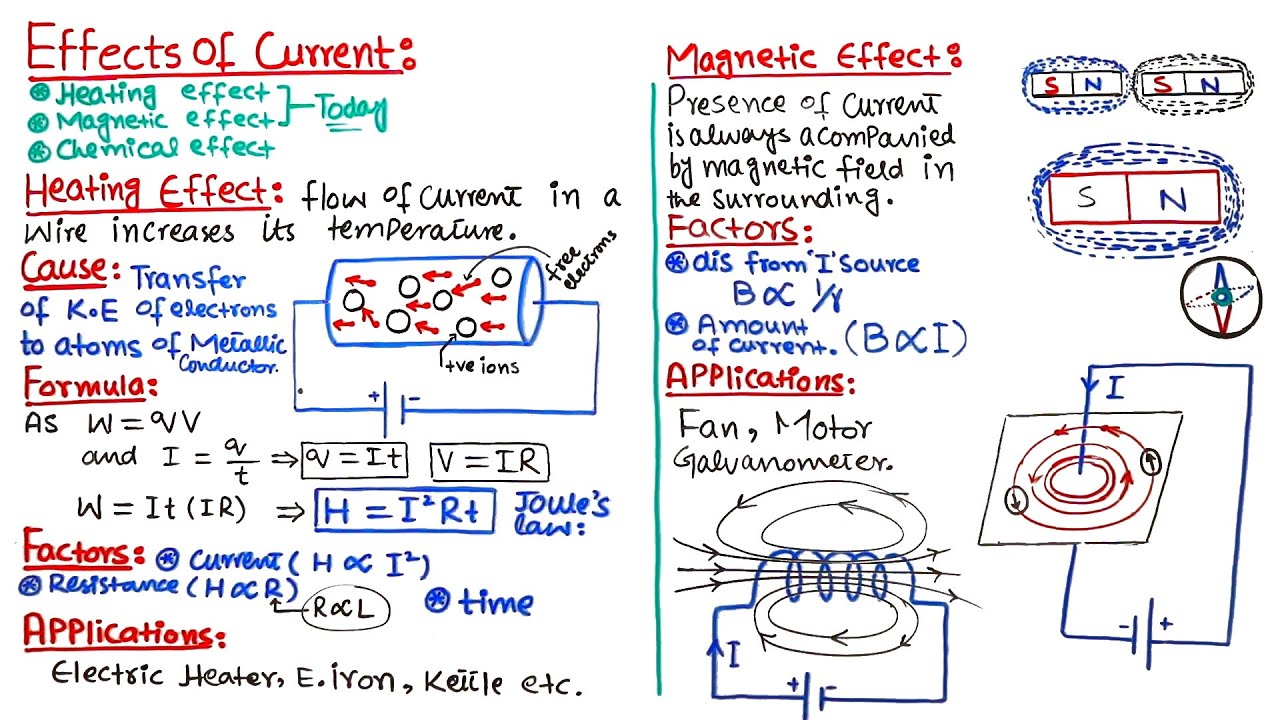 Effects Of Current:
Heating effect
Magnetic effect
Today
Chemical effect
Heating Effect: flow of Current in a
wire increases its temperature.
Cause: Transfer
of K.E of electrons
to atoms of Metallic
Conductor.
free
electrons
+ve ions
+ -
Formula:
As W = qV
and I = q/t ⇒ q = It V = IR
W = It (IR) ⇒ H = I²Rt Joule's
law:
Factors: Current (H ∝ I²)
Resistance (H ∝ R)
R ∝ L
time
Applications:
Electric Heater, E. iron, Kettle etc.
Magnetic Effect:
Presence of Current
is always acompanied
by magnetic field in
the surrounding.
Factors:
dis from 'I' source
B ∝ 1/r
Amount
of current. (B ∝ I)
Applications:
Fan, Motor
Galvanometer.
S N S N
S N
I
- +
I
+ -